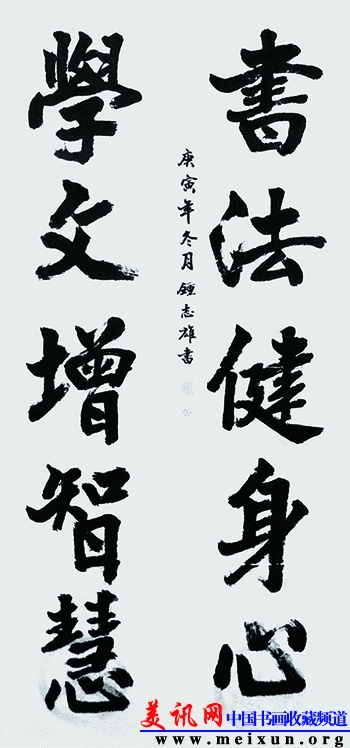 書法健身心
學文增智慧
庚寅年冬月鍾志雄書
美讯网 中国书画收藏频道
www.meixun.org